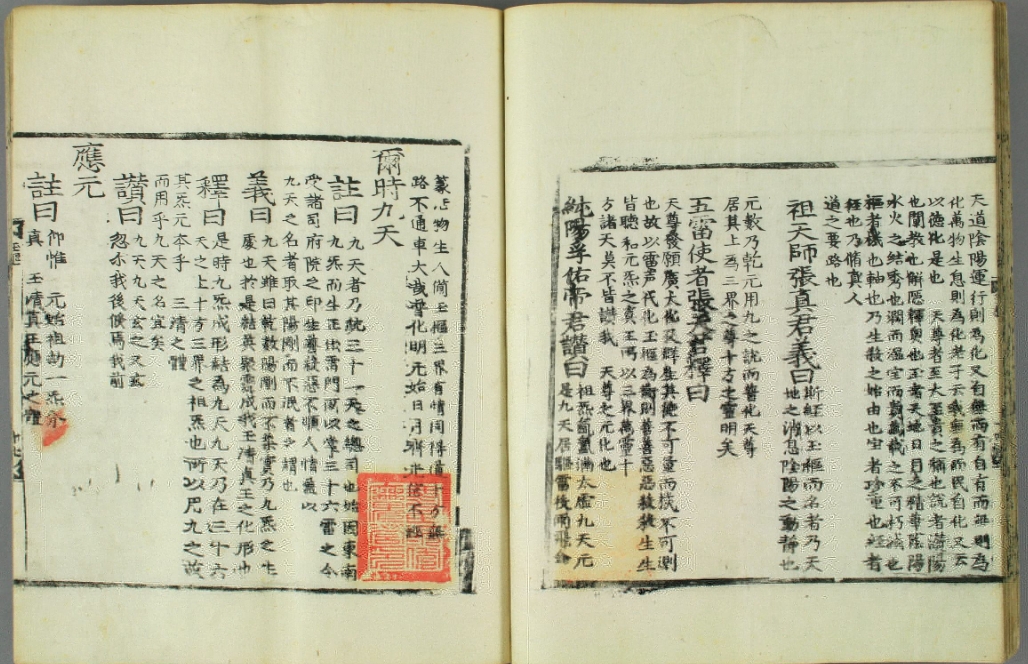 天道陰陽運行則為化又自無而有自有而無則為
化萬物生息則為化老子云我無為而民自化又云
以德化是也 天尊者至大至貴之稱也說者讚陽
也闡教也解隱釋奧也玉者天地日月之精華陰陽
水火之結秀也潤而溫定而貞藏之不可朽滅也
樞者機也軸也乃生殺之始由也宝者珍重也經者
徑也乃脩真人
道之要路也
祖天師張真君義曰 斯經以玉樞而名者乃天
地之消息陰陽之動靜也
元數乃乾元用九之說而普化天尊
居其上為三界之尊十方之靈明矣
五雷使者張天君釋曰
天尊發願廣大化又群生其德不可量而誠不可測
也故以雷声代化玉樞為樞則善善惡惡殺殺生生
皆聽和元炁之真王所以三界萬靈十
方諸天莫不皆讚我 天尊之元化也
純陽孚佑帝君讚曰 祖炁氤氳滿太虛九天元
是九天居驅雷役雨飛金
篆 物生人簡玉樞三界有情同得 十方無
路不通車大哉普化明元始日月 光 不
爾時九天
註曰 九天者乃統三十一天之總司也始因東南
九炁而生正出雷門所以掌三十六雷之令
受諸司府院之印生善殺惡不順人情蓋以
九天之名者取其陽剛而不泯者之謂也
義曰 九天雖曰乾數陽剛而不柔實乃九炁之生
處也於是結英聚靈成我玉清真王之化形也
釋曰 是時九炁成形結為九天九天乃在三十六
天之上十方三界之祖炁也所以凡九之成
其炁元本乎 三清之體
而用乎九天之名宜矣
讚曰 九天九天玄之又玄
忽尔我後倏焉我前
應元
註曰 仰惟 元始祖劫一炁分
真 玉清真王應元之體